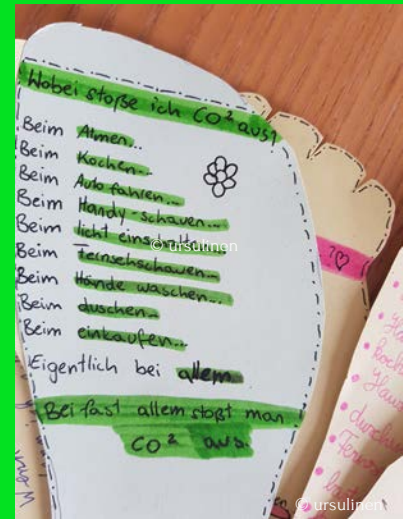 Wobei stoße ich CO² aus?
Beim Atmen...
Beim Kochen...
Beim Auto fahren...
Beim Handy-schauen...
Beim licht
Beim Fernsehschauen...
Beim Hände waschen...
Beim duschen...
Beim einkaufen...
Eigentlich bei allem...
Bei fast allem stoßt man
CO² aus.
© ursulinen
© ursulinen